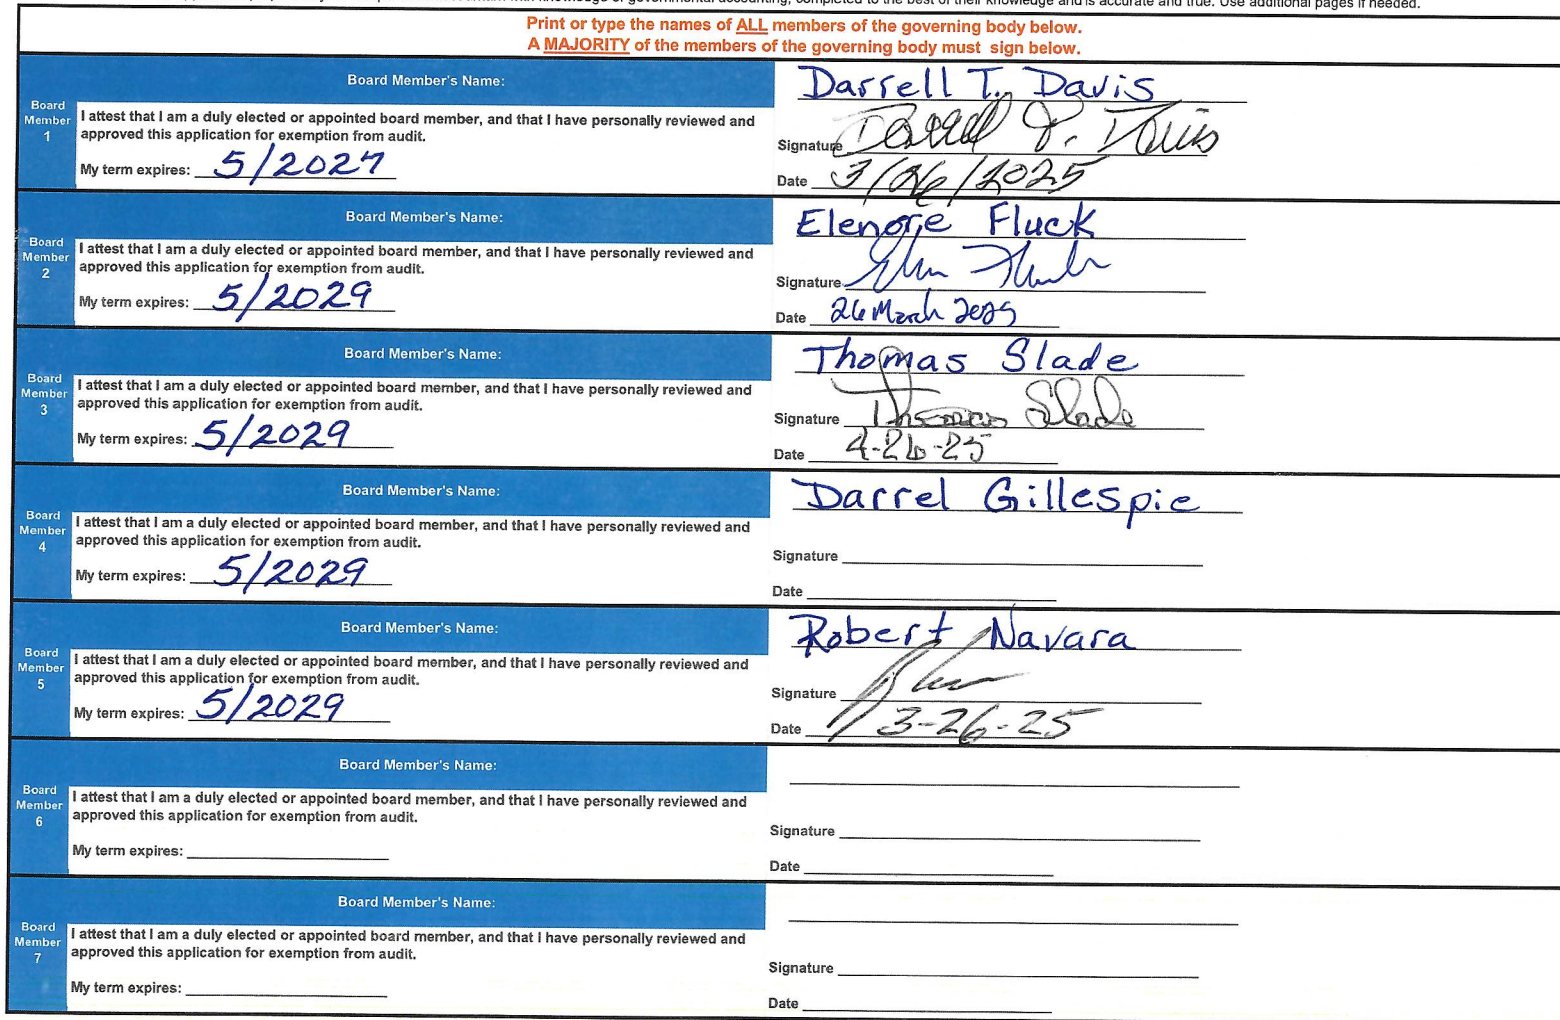 Print or type the names of ALL members of the governing body below.
A MAJORITY of the members of the governing body must sign below.
Board Member 1
Board Member's Name:
Darrell T. Davis
I attest that I am a duly elected or appointed board member, and that I have personally reviewed and
approved this application for exemption from audit.
Signature Darrell T. Davis
My term expires: 5/2027
Date 3/26/2025
Board Member 2
Board Member's Name:
Elenore Fluck
I attest that I am a duly elected or appointed board member, and that I have personally reviewed and
approved this application for exemption from audit.
Signature
My term expires: 5/2029
Date 26 March 2025
Board Member 3
Board Member's Name:
Thomas Slade
I attest that I am a duly elected or appointed board member, and that I have personally reviewed and
approved this application for exemption from audit.
Signature Thomas Slade
My term expires: 5/2029
Date 4-26-25
Board Member 4
Board Member's Name:
Darrel Gillespie
I attest that I am a duly elected or appointed board member, and that I have personally reviewed and
approved this application for exemption from audit.
Signature
My term expires: 5/2029
Date
Board Member 5
Board Member's Name:
Robert Navara
I attest that I am a duly elected or appointed board member, and that I have personally reviewed and
approved this application for exemption from audit.
Signature
My term expires: 5/2029
Date 3-26-25
Board Member 6
Board Member's Name:
I attest that I am a duly elected or appointed board member, and that I have personally reviewed and
approved this application for exemption from audit.
Signature
My term expires:
Date
Board Member 7
Board Member's Name:
I attest that I am a duly elected or appointed board member, and that I have personally reviewed and
approved this application for exemption from audit.
Signature
My term expires:
Date